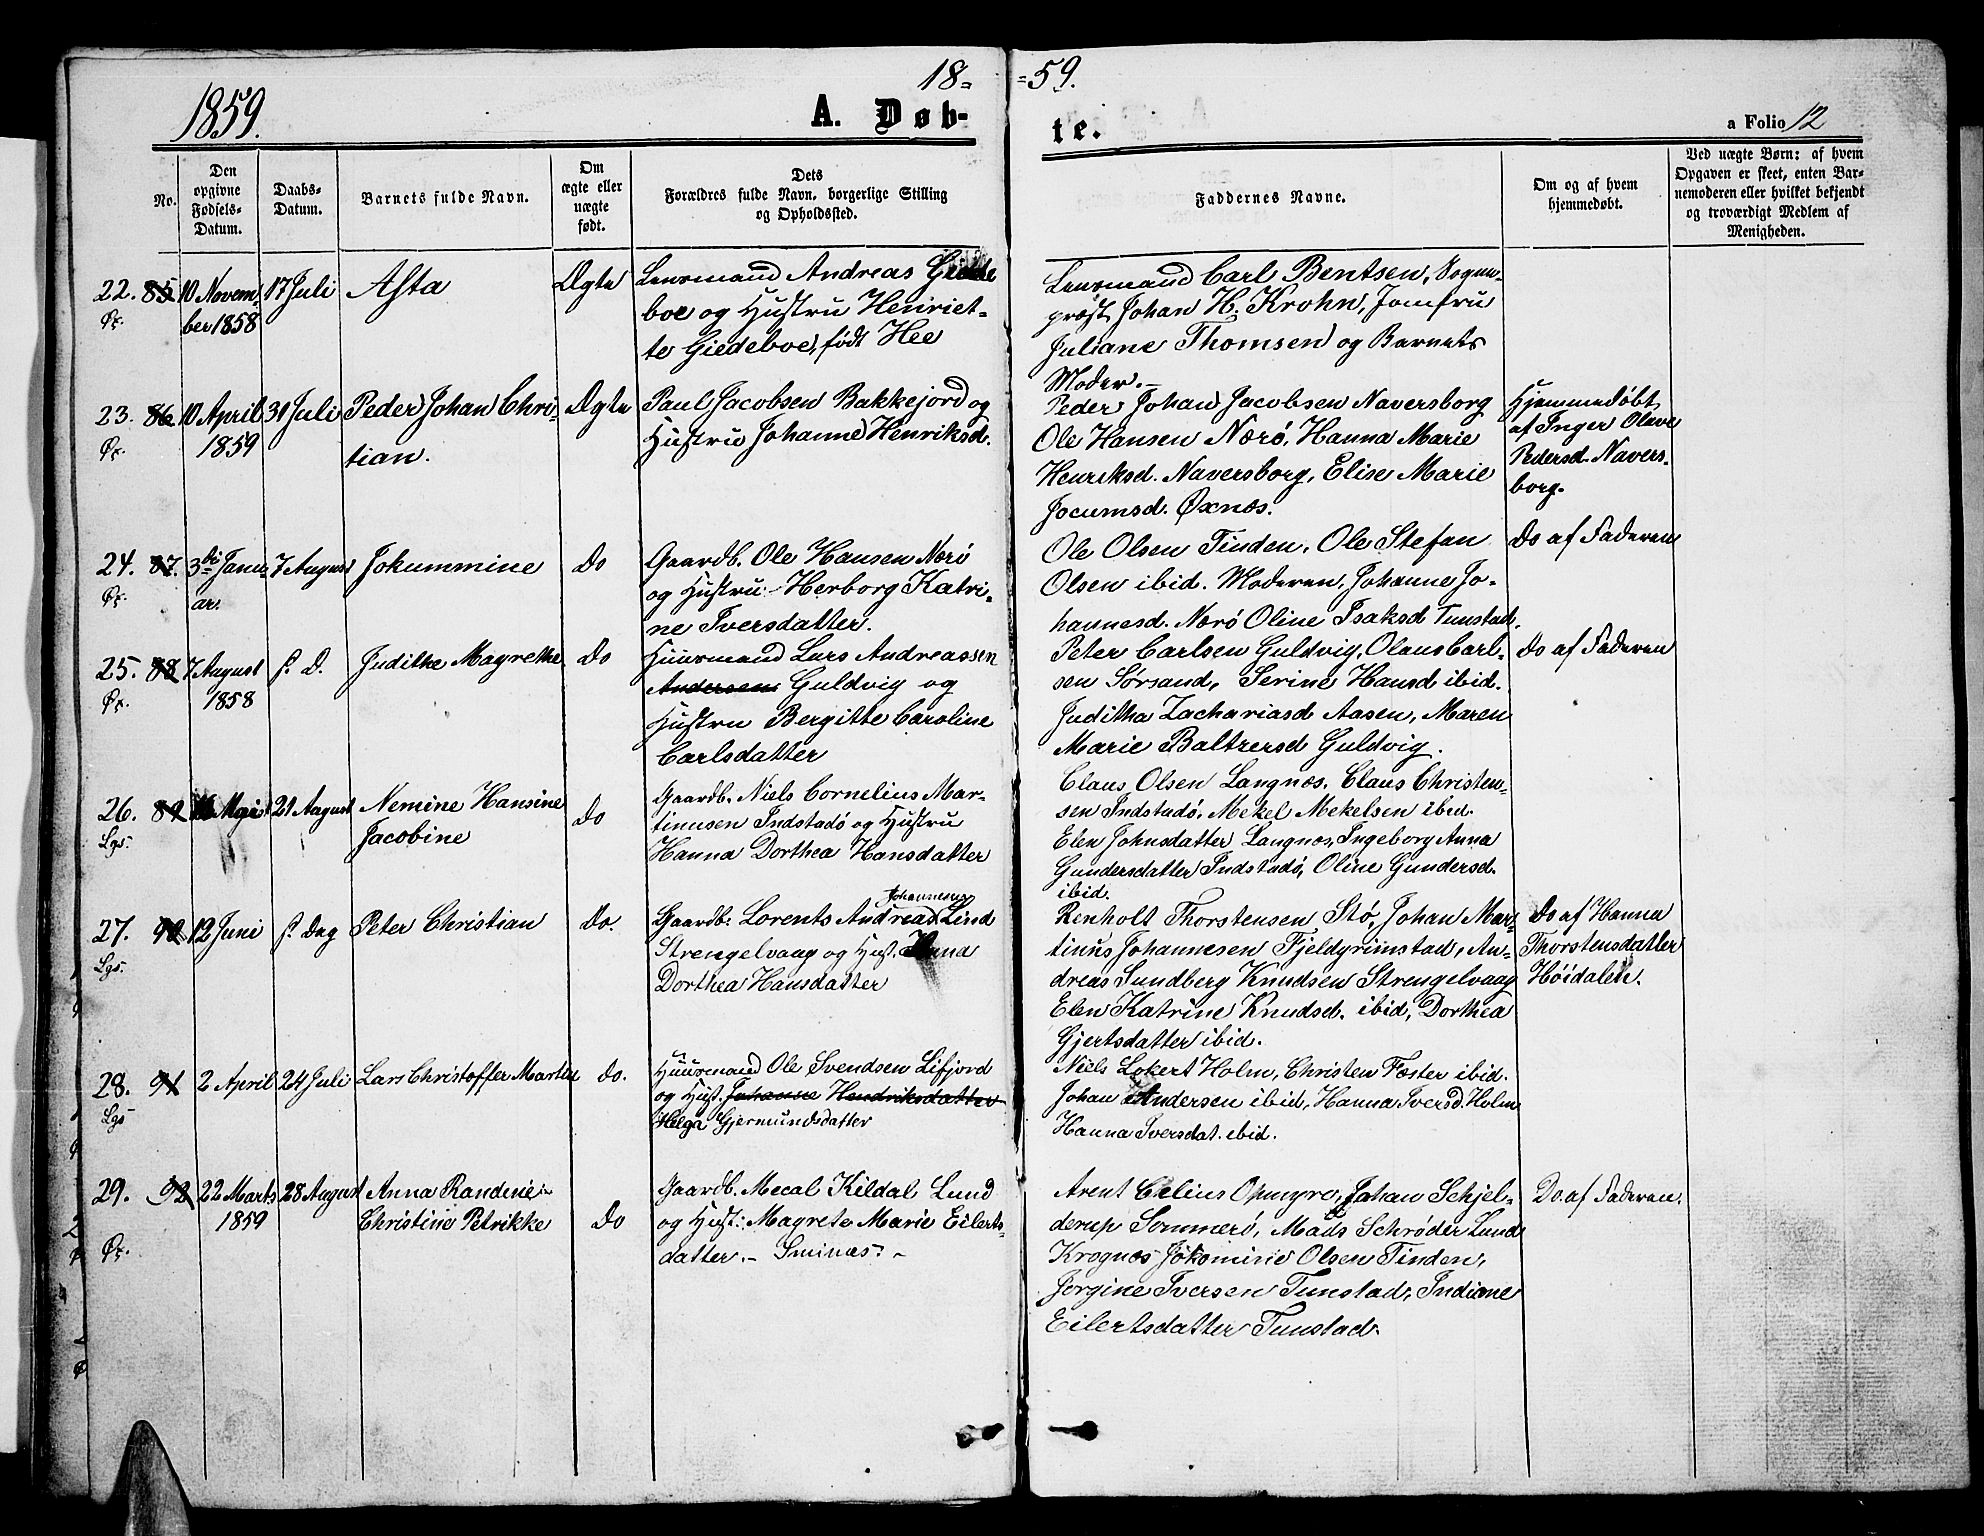 18= =59.
1859.
A. Døb-
te.
a Folio 12
No.
Den opgivne Fødsels-Datum.
Daabs-Datum.
Barnets fulde Navn.
Om ægte eller uægte født.
Dets Forældres fulde Navn, borgerlige Stilling og Opholdssted.
Faddernes Navne.
Om og af hvem hjemmedøbt.
Ved uægte Børn: af hvem Opgaven er skeet, enten Barnemoderen eller hvilket bekjendt og troværdigt Medlem af Menigheden.
22. 85 10 Novem-
ber 1858
Øx.
17 Juli
Asta
Ægte
Lensmand Andreas Giede
boe og Hustru Henriet-
te Giedeboe, født Hee
Lensmand Carl Bentsen, Sogne-
præst Johan H. Krohn, Jomfru
Juliane Thomsen og Barnets
Moder.-
23. 86 10 April
1859
Øx.
31 Juli
Peder Johan Chri-
tian.
Ægte
Paul Jacobsen Bakkejord og
Hustru Johanne Henriksd.
Peder Johan Jacobsen Naversborg
Ole Hansen Nærø, Hanna Marie
Henriksd. Naversborg, Elise Marie
Jocumsd. Øxnæs.
Hjemmedøbt
af Inger Olave
Pedersd. Navers-
borg.
24. 87. 3die Janu-
ar.
Øx.
7 August
Jokummine
Do
Gaardb. Ole Hansen Nærø
og Hustru Herborg Katri-
ne Iversdatter.
Ole Olsen Tinden, Ole Stefan
Olsen ibid. Moderen, Johanne Jo-
hannesd. Nærø Oline Isaksd Tunstad.
Do af Faderen
25. 88 7 August
1858
Øx.
s. D.
Judithe Magrethe
Do
Huusmand Lars Andreassen
Andersen Guldvig og
Hustru Bergitte Caroline
Carlsdatter
Peter Carlsen Guldvig, Olaus Carl-
sen Sørsand, Serine Hansd ibid.
Juditha Zachariasd Aasen, Maren
Marie Baltzersd Guldvig.
Do af Faderen
26. 89 Mai
Lgs.
21 August
Nemine Hansine
Jacobine
Do
Gaardb. Niels Cornelius Mar-
tinusen Indstadø og Hustru
Hanna Dorthea Hansdatter
Claus Olsen Langnæs, Claus Christen-
sen Indstadø, Mekel Mekelsen ibid.
Elen Johnsdatter Langnæs, Ingeborg Anna
Gundersdatter Indstadø, Oline Gundersd.
ibid.
27. 90 12 Juni
Lgs.
s. Dag
Peter Christian
Do.
Johannesen
Gaardb. Lorents Andreas Lind
Strengelvaag og Hust. Hanna
Dorthea Hansdatter
Renholt Thorstensen Stø, Johan Mar-
tinus Johannesen Fjeldgrimstad, An-
dreas Sundberg Knudsen Strengelvaag
Elen Katrine Knudsd. ibid, Dorthea
Gjertsdatter ibid.
Do af Hanna
Thorstensdatter
Høidalen.
28. 91 2 April
Lgs
24 Juli
Lars Christoffer Martin
Do.
Huusmand Ole Svendsen Lifjord
og Hust. Johanne Hendriksdatter
Helga Gjermundsdatter
Niels Lokert Holm, Christen Fæster ibid.
Johan Andersen ibid, Hanna Iversd. Holm
Hanna Iversdat. ibid.
29. 92 22 Marts
1859
Øx.
28 August
Anna Randine
Christine Petrikke
Do
Gaardb. Mecal Kildal Lund
og Hust: Magrete Marie Eilerts-
datter.- Sminæs.-
Arent Celius Opmyre, Johan Schjel-
derup Sommerø, Mads Schrøder Lund
Krognæs Jokomine Olsen Tinden,
Jørgine Iversen Tunstad, Indiane
Eilertsdatter Tunstad.
Do. af Faderen.